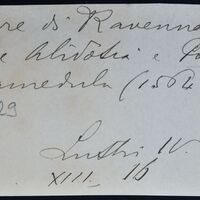 re di Ravenna
e Alidosia e
amedula (1564
29
Lustri IV.
XIII. 16